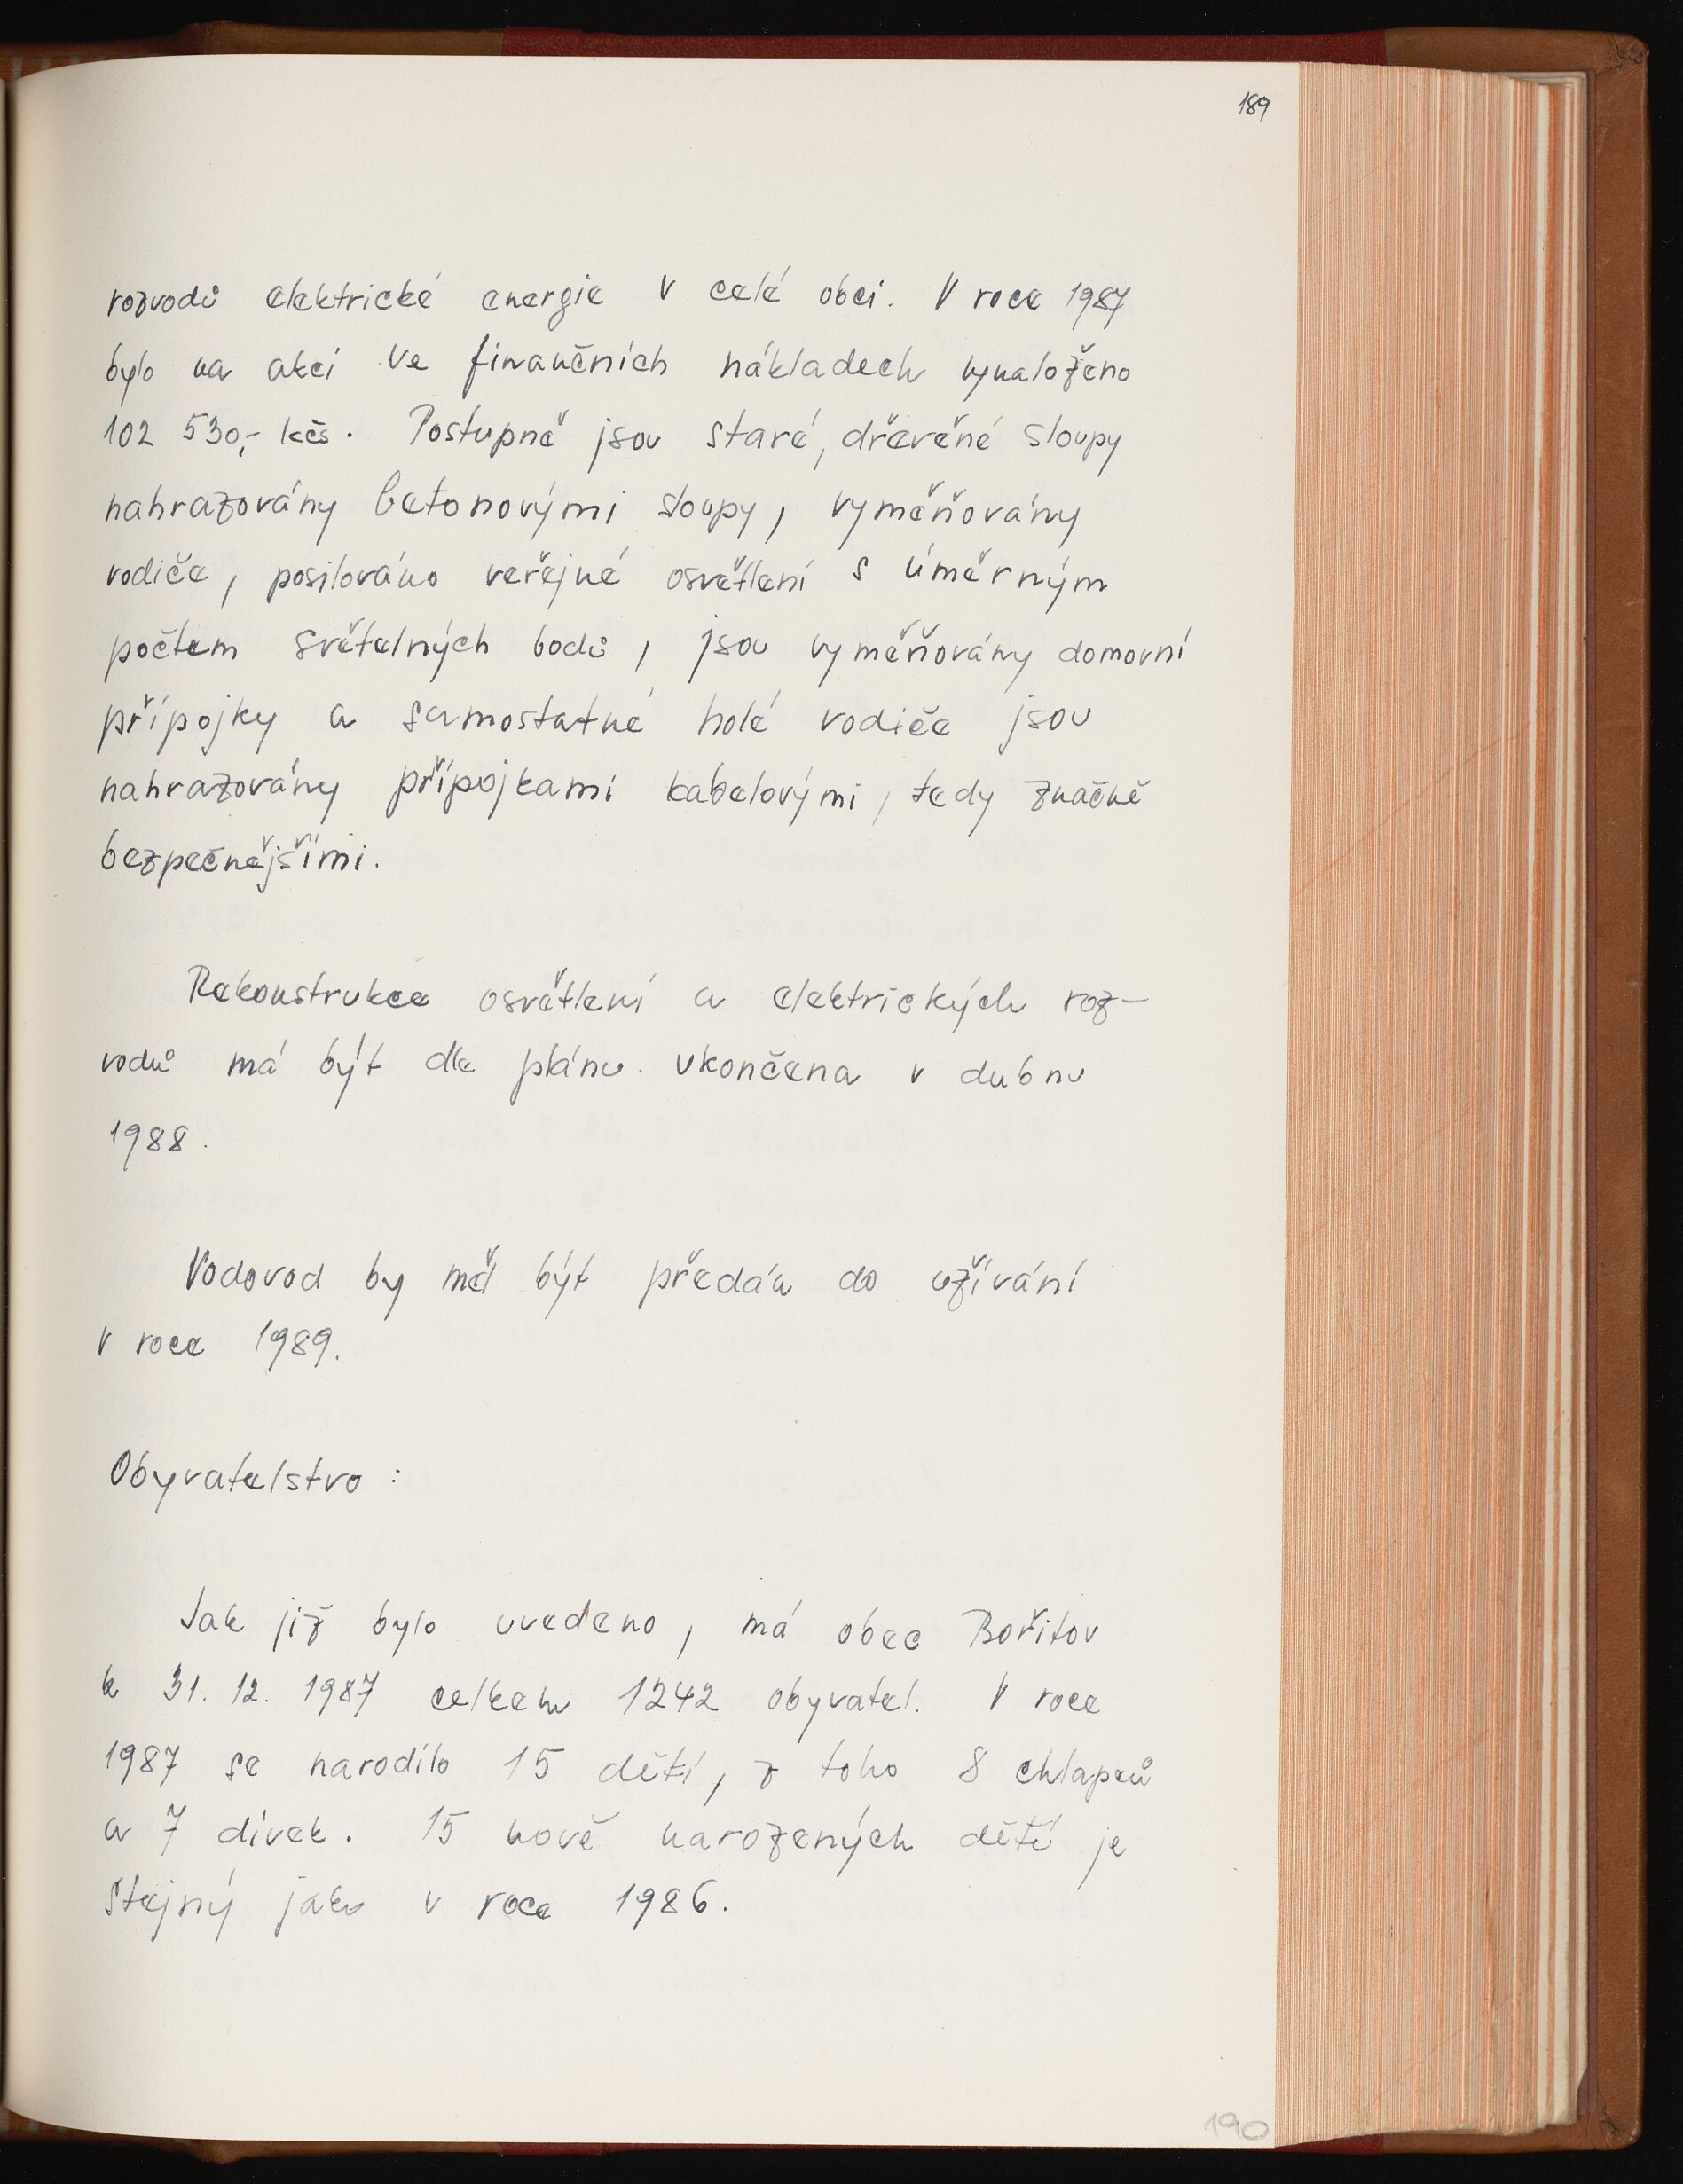 189
rozvodů elektrické energie v celé obci. V roce 1987
bylo na akci ve finančních nákladech vynaloženo
102 530,- kčs. Postupně jsou staré, dřevěné sloupy
nahrazovány betonovými sloupy, vyměňovány
vodiče, posilováno veřejné osvětlení s úměrným
počtem světelných bodů, jsou vyměňovány domovní
přípojky a samostatné holé vodiče jsou
nahrazovány přípojkami kabelovými, tedy značně
bezpečnějšími.
Rekonstrukce osvětlení a elektrických roz-
vodů má být dle plánu ukončena v dubnu
1988.
Vodovod by měl být předán do užívání
v roce 1989.
Obyvatelstvo :
Jak již bylo uvedeno, má obec Bořitov
k 31. 12. 1987 celkem 1242 obyvatel. V roce
1987 se narodilo 15 dětí, z toho 8 chlapců
a 7 dívek. 15 nově narozených dětí je
stejný jako v roce 1986.
190